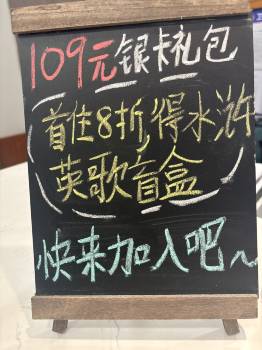 109元银卡礼包
首住8折,得水浒
英歌盲盒
快来加入吧~